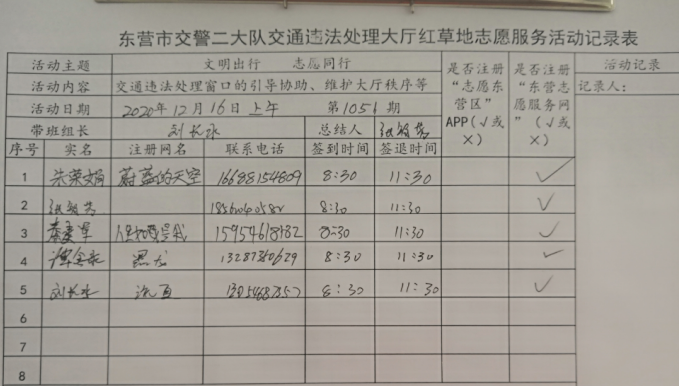 东营市交警二大队交通违法处理大厅红草地志愿服务活动记录表
活动主题 文明出行 志愿同行 是否注册“志愿东营区”APP(√或×) 是否注册“东营志愿服务网”(√或×) 活动记录
活动内容 交通违法处理窗口的引导协助、维护大厅秩序等 记录人:
活动日期 2020年12月16日上午 第1051期
带班组长 刘长水 总结人
序号 实名 注册网名 联系电话 签到时间 签退时间
1 蔚蓝的天空 16688154809 8:30 11:30 √
2 8:30 11:30 √
3 15954618882 8:30 11:30 √
4 黑龙 13287360629 8:30 11:30 √
5 刘长水 8:30 11:30 √
6
7
8